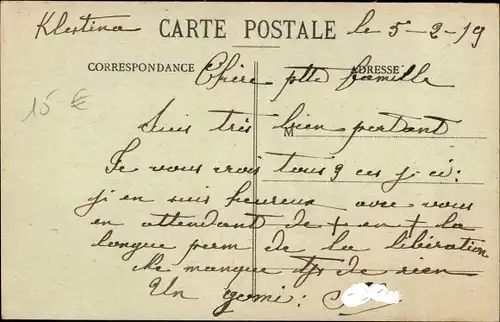 Klestina CARTE POSTALE le 5-2-19
CORRESPONDANCE ADRESSE
Chère ptte famille
15 €
Suis très bien portant
M
Je vous crois tous 9 ces j ci:
j'en suis heureux avec vous
en attendant de + en + la
longue perm de la libération
Ne manque de rien
Un